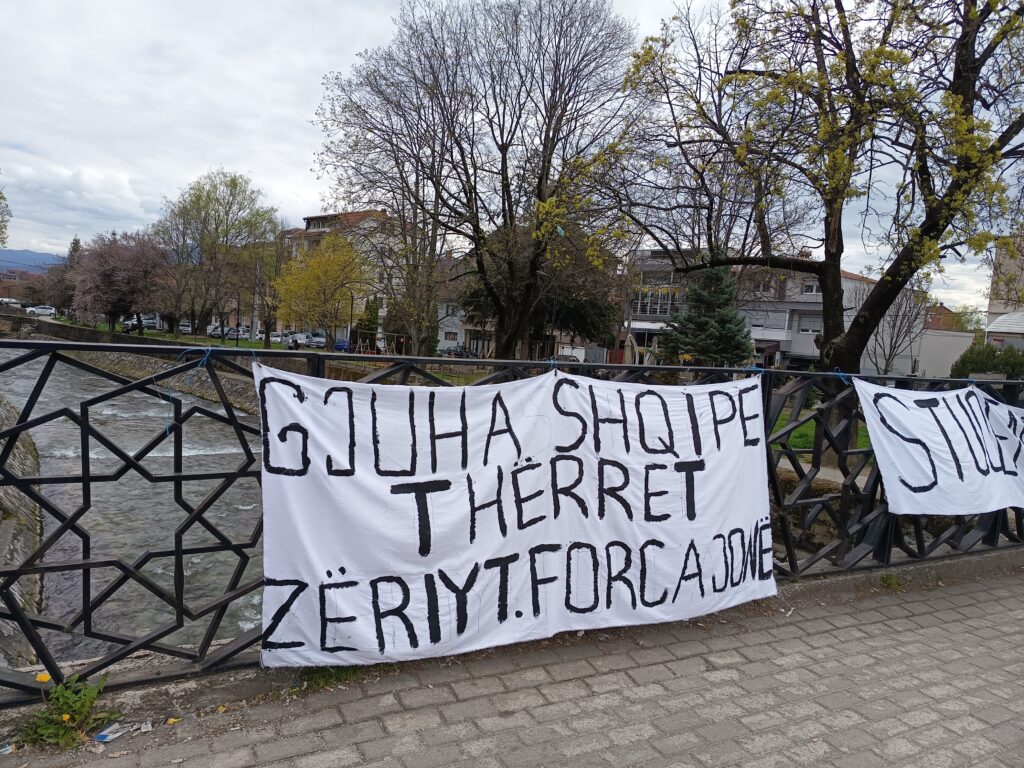 GJUHA SHQIPE
THËRRET
ZËRI IYT. FORCA JONË